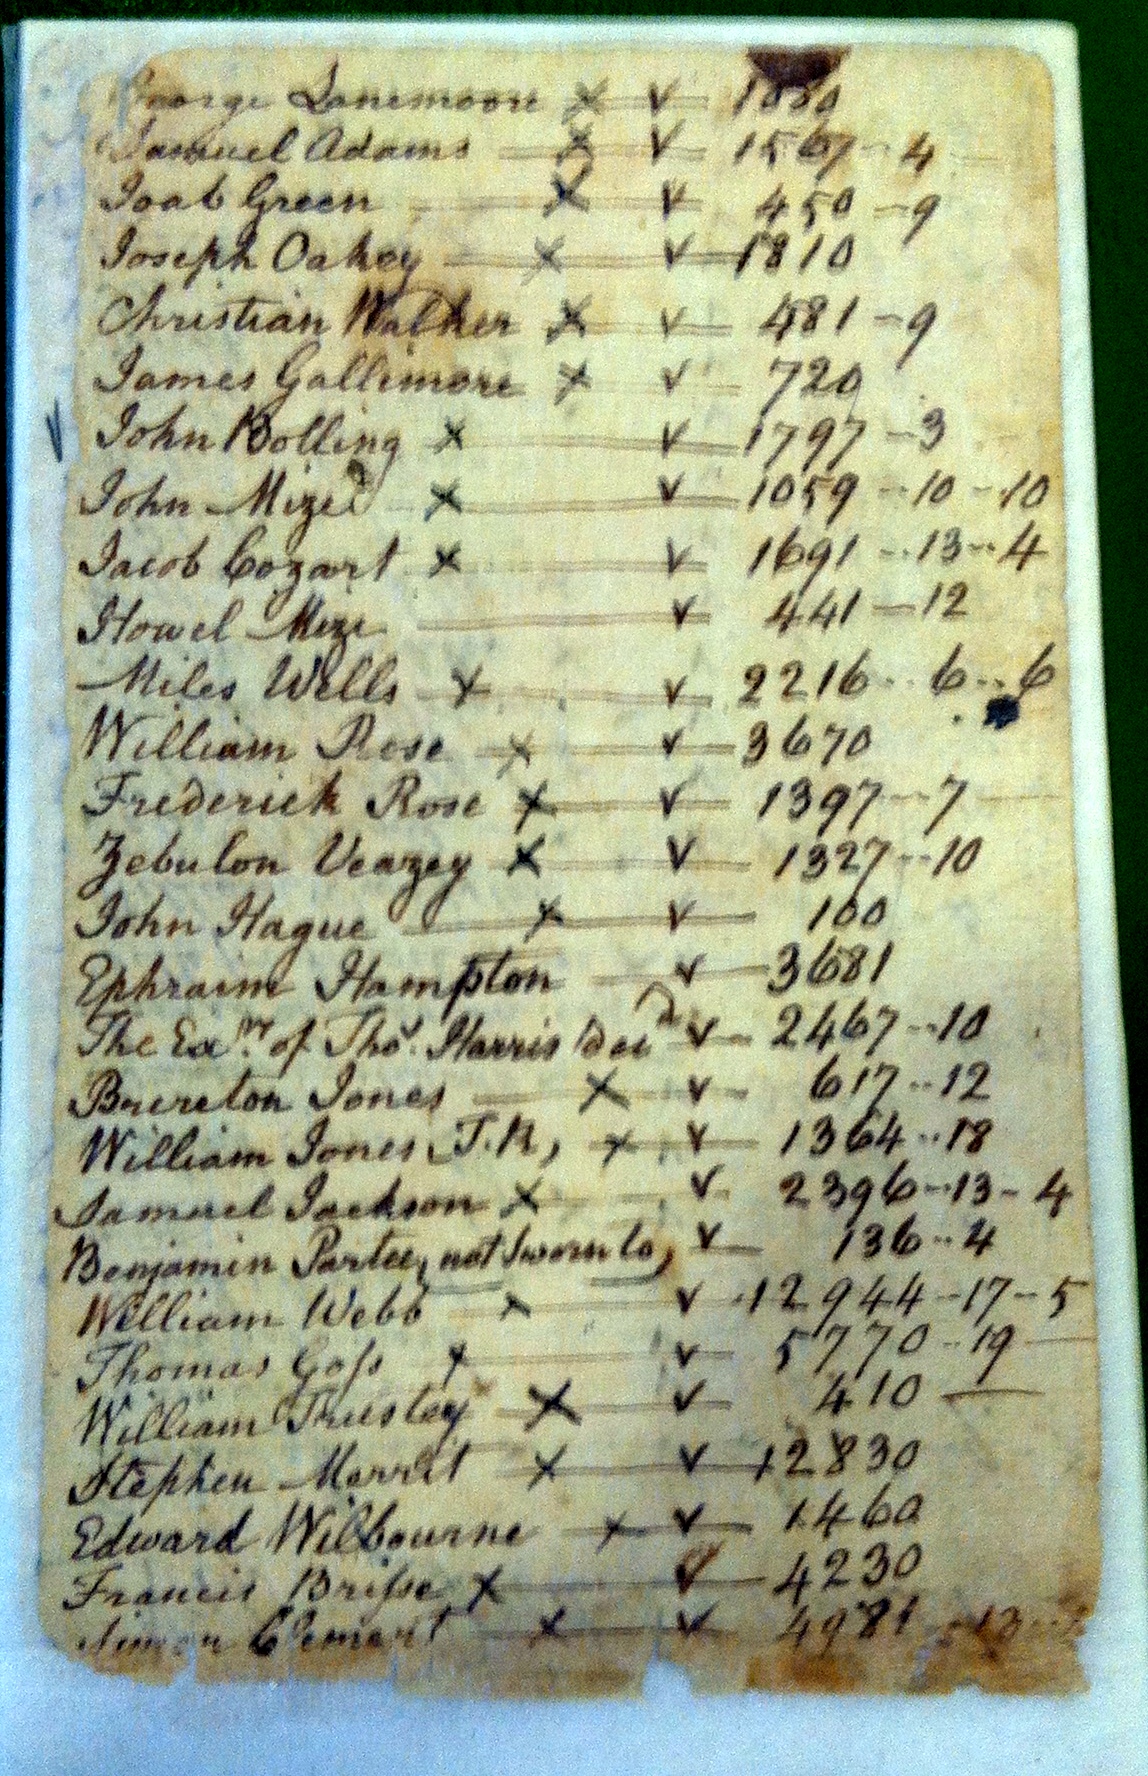 George Lanemoore X v 1080
Samuel Adams X v 1567 - 4
Joab Green X v 450 - 9
Joseph Oakey X v 1810
Christian Walker X v 481 - 9
James Gallimore X v 720
John Bolling X v 1797 - 3
John Mize X v 1059 - 10 - 10
Jacob Cozart X v 1691 - 13 - 4
Howel Mize v 441 - 12
Miles Wells X v 2216 - 6 - 6
William Rose X v 3670
Frederick Rose X v 1397 - 7
Zebulon Veazey X v 1327 - 10
John Hague X v 100
Ephraim Hampton v 3681
The Exr. of Thos. Harris Decd v 2467 - 10
Brereton Jones X v 617 - 12
William Jones, T.R, X v 1364 - 18
Samuel Jackson X v 2396 - 13 - 4
Benjamin Partee, not Sworn to, v 136 - 4
William Webb X v 12944 - 17 - 5
Thomas Goss X v 5770 - 19
William Trustey X v 410
Stephen Merrit X v 12830
Edward Wilbourne X v 1460
Francis Brisse X v 4230
Simon Clement X v 4981 - 13